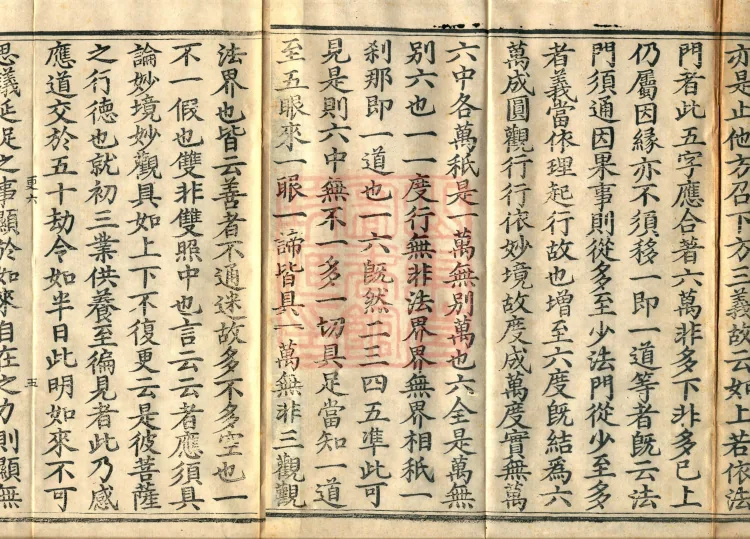 亦是止他方召下方三義故云如上若依法
門者此五字應合著六萬非多下非多已上
仍屬因緣亦不須移一即一道等者既云法
門須通因果事則從多至少法門從少至多
者義當依理起行故也增至六度既結為六
萬成圓觀行行依妙境故度成萬度實無萬
六中各萬秖是一萬無別萬也六全是萬無
別六也一一度行無非法界界無界相秖一
剎那即一道也一六既然二三四五準此可
見是則六中無不一多一切具足當知一道
至五眼來一眼一諦皆具一萬無非三觀觀
法界也皆云善者不通迷故多不多空也一
不一假也雙非雙照中也言云云者應須具
論妙境妙觀具如上下不復更云是彼菩薩
之行德也就初三業供養至徧見者此乃感
應道交於五十劫令如半日此明如來不可
更六
五
思議延促之事顯於如來自在之力則顯無